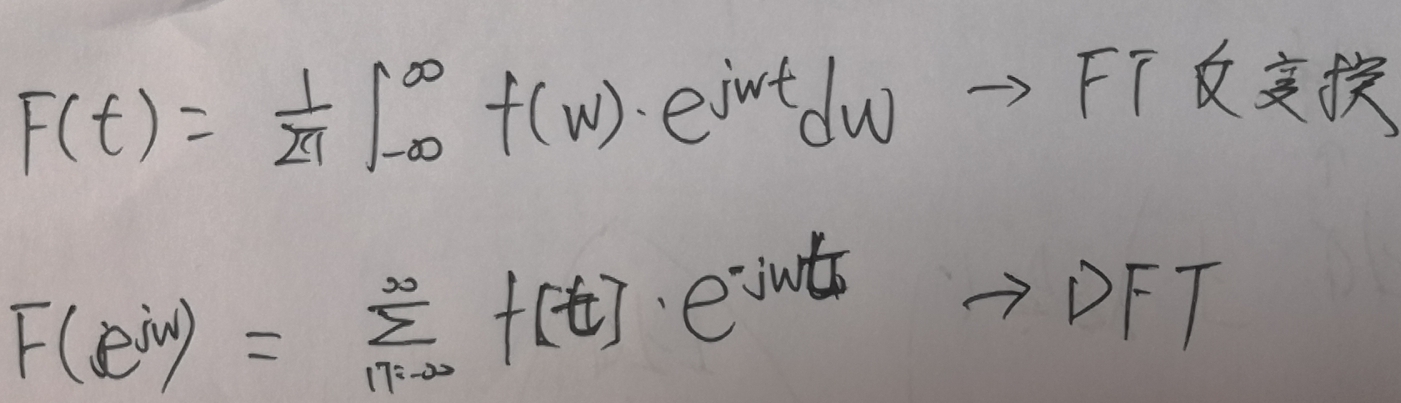 F(t) = 1/2π ∫_{-∞}^{∞} f(w)·e^{jwt}dw → FT 反变换
F(e^{jw}) = ∑_{n=-∞}^{∞} f[t]·e^{-jwt} → DFT